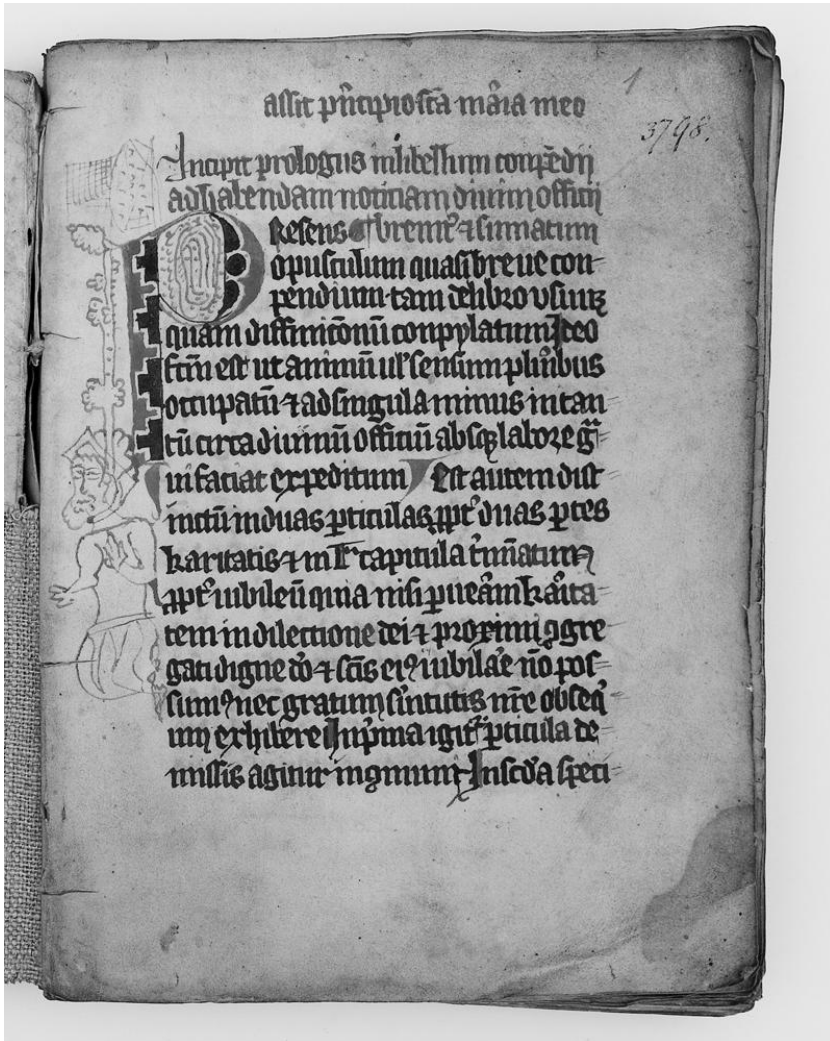 assit prīcipio scā māia meo
1
3798.
Incipit prologus in libellum conpēdij
ad habendam noticiam diuini officij
Resens breuit᷒ ⁊ sūmatum
opusculum quasi breue con-
pendium tam de libro usuūꝫ
quam diffinicōnū conpylatum Ideo
fctm̄ est ut animū ul' sensum plurībus
occupatū ⁊ ad singula minus intan
tū circa diuinū officiū absqꝫ labore gͣ-
ui faciat expeditum Est autem dist
inctū in duas ꝑticulas ꝓpt̓ duas ꝑtes
karitatis ⁊ in capitula t̓mīatum
ꝓpt̓ iubileū quia nisi ꝑ ueām kāita
tem in dilectione dei ⁊ proximi ꝯgre
gati digne dō ⁊ scīs ei᷒ iubilāe nō pos
sum᷒ nec gratum s̄uitutis nr̄e obseq̄
ium exhibere In p̄ma igit᷑ ꝑticula de
missis agitur in ꝯmuni Jn scd̄a speci